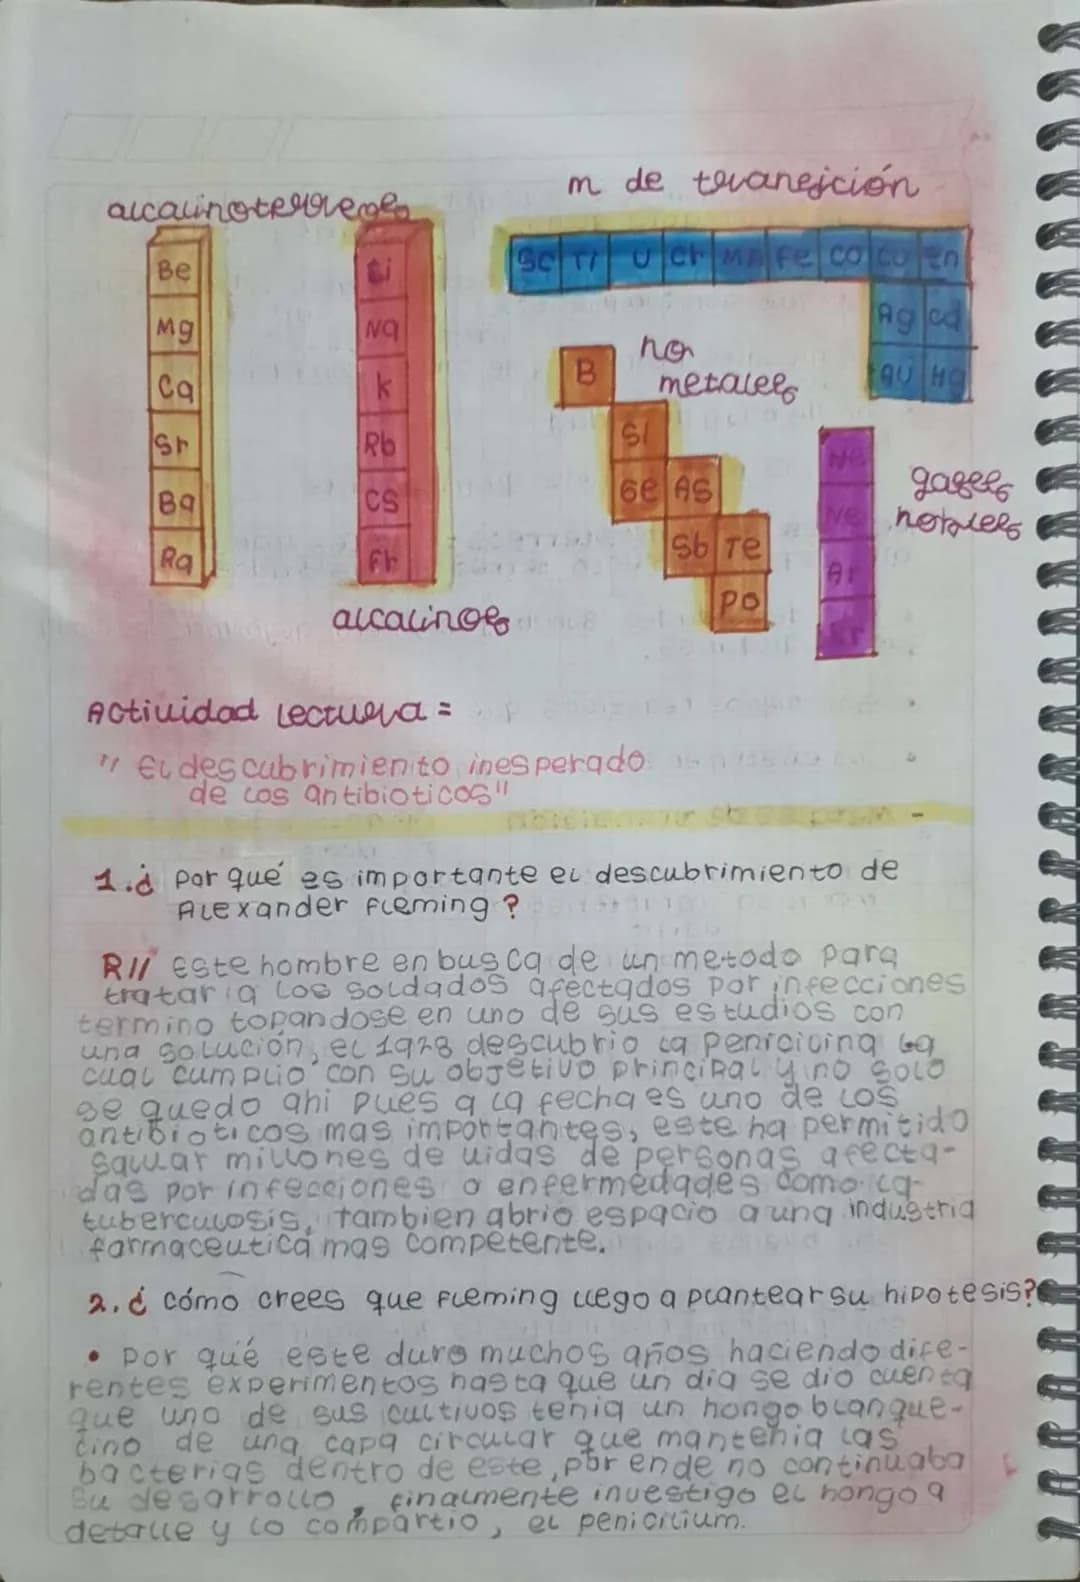 m de tranesición
alcalinoterreos
Be
Mg
Ca
Sr
Ba
Ra
Li
Na
K
Rb
Cs
Fr
alcalinos
SC TI U Cr MN Fe CO CU Zn
Ag Cd
AU HG
no
metales
B
SI
Ge AS
Sb Te
PO
He
Ne
Ar
Kr
gases
nobles
Actividad Lectura =
" El descubrimiento inesperado
de los antibioticos"
1.¿ Por qué es importante el descubrimiento de
Alexander Fleming ?
R// Este hombre en busca de un metodo para
tratar a los soldados afectados por infecciones
termino topandose en uno de sus estudios con
una solución, el 1928 descubrio la penicilina la
cual cumplio con su objetivo principal y no solo
se quedo ahi pues a la fecha es uno de los
antibioticos mas importantes, este ha permitido
salvar millones de vidas de personas afecta-
das por infecciones o enfermedades como la
tuberculosis, tambien abrio espacio a una industria
farmaceutica mas competente.
2. ¿ cómo crees que Fleming llego a plantear su hipotesis?
• Por qué este duro muchos años haciendo dife-
rentes experimentos hasta que un dia se dio cuenta
que uno de sus cultivos tenia un hongo blanque-
cino de una capa circular que mantenia las
bacterias dentro de este, por ende no continuaba
su desarrollo, finalmente investigo el hongo a
detalle y lo compartio, el penicilium.